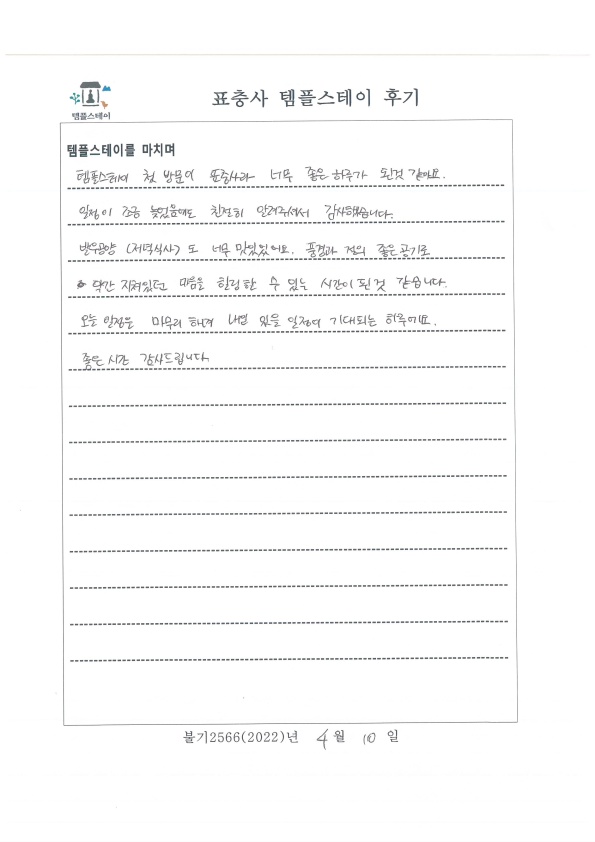 템플스테이
표충사 템플스테이 후기
템플스테이를 마치며
템플스테이 첫 방문이 표충사라 너무 좋은 하루가 된것 같아요.
일정이 조금 늦었음에도 친절히 안내주셔서 감사했습니다.
발우공양 (저녁식사) 도 너무 맛있었어요. 풍경과 절의 좋은 공기로
약간 지쳐있던 마음을 힐링할 수 있는 시간이 된것 같습니다.
오늘 일정은 마무리 하며 내일 있을 일정이 기대되는 하루에요.
좋은 시간 감사드립니다.
불기2566(2022)년 4월 10 일